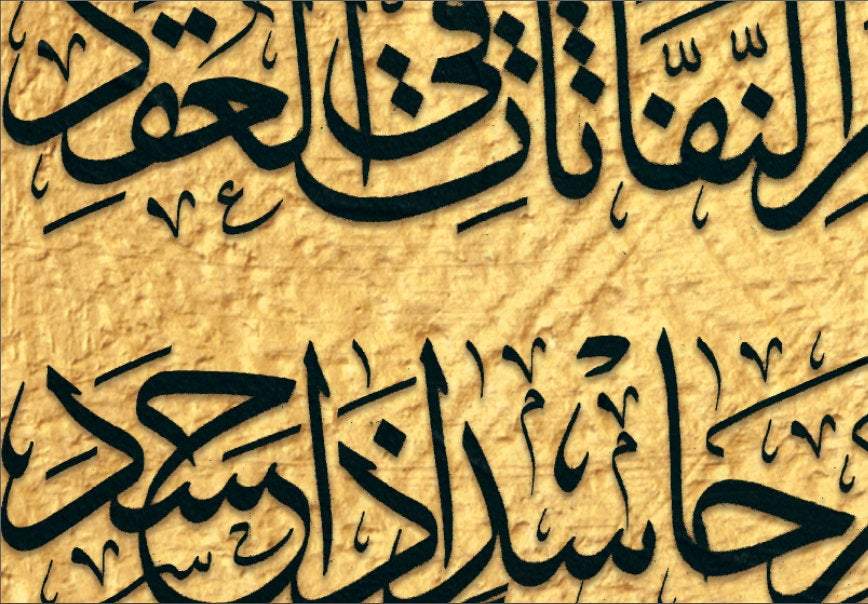 النَّفَّاثَاتِ فِي الْعُقَدِ
حَاسِدٍ اِذَا حَسَدَ